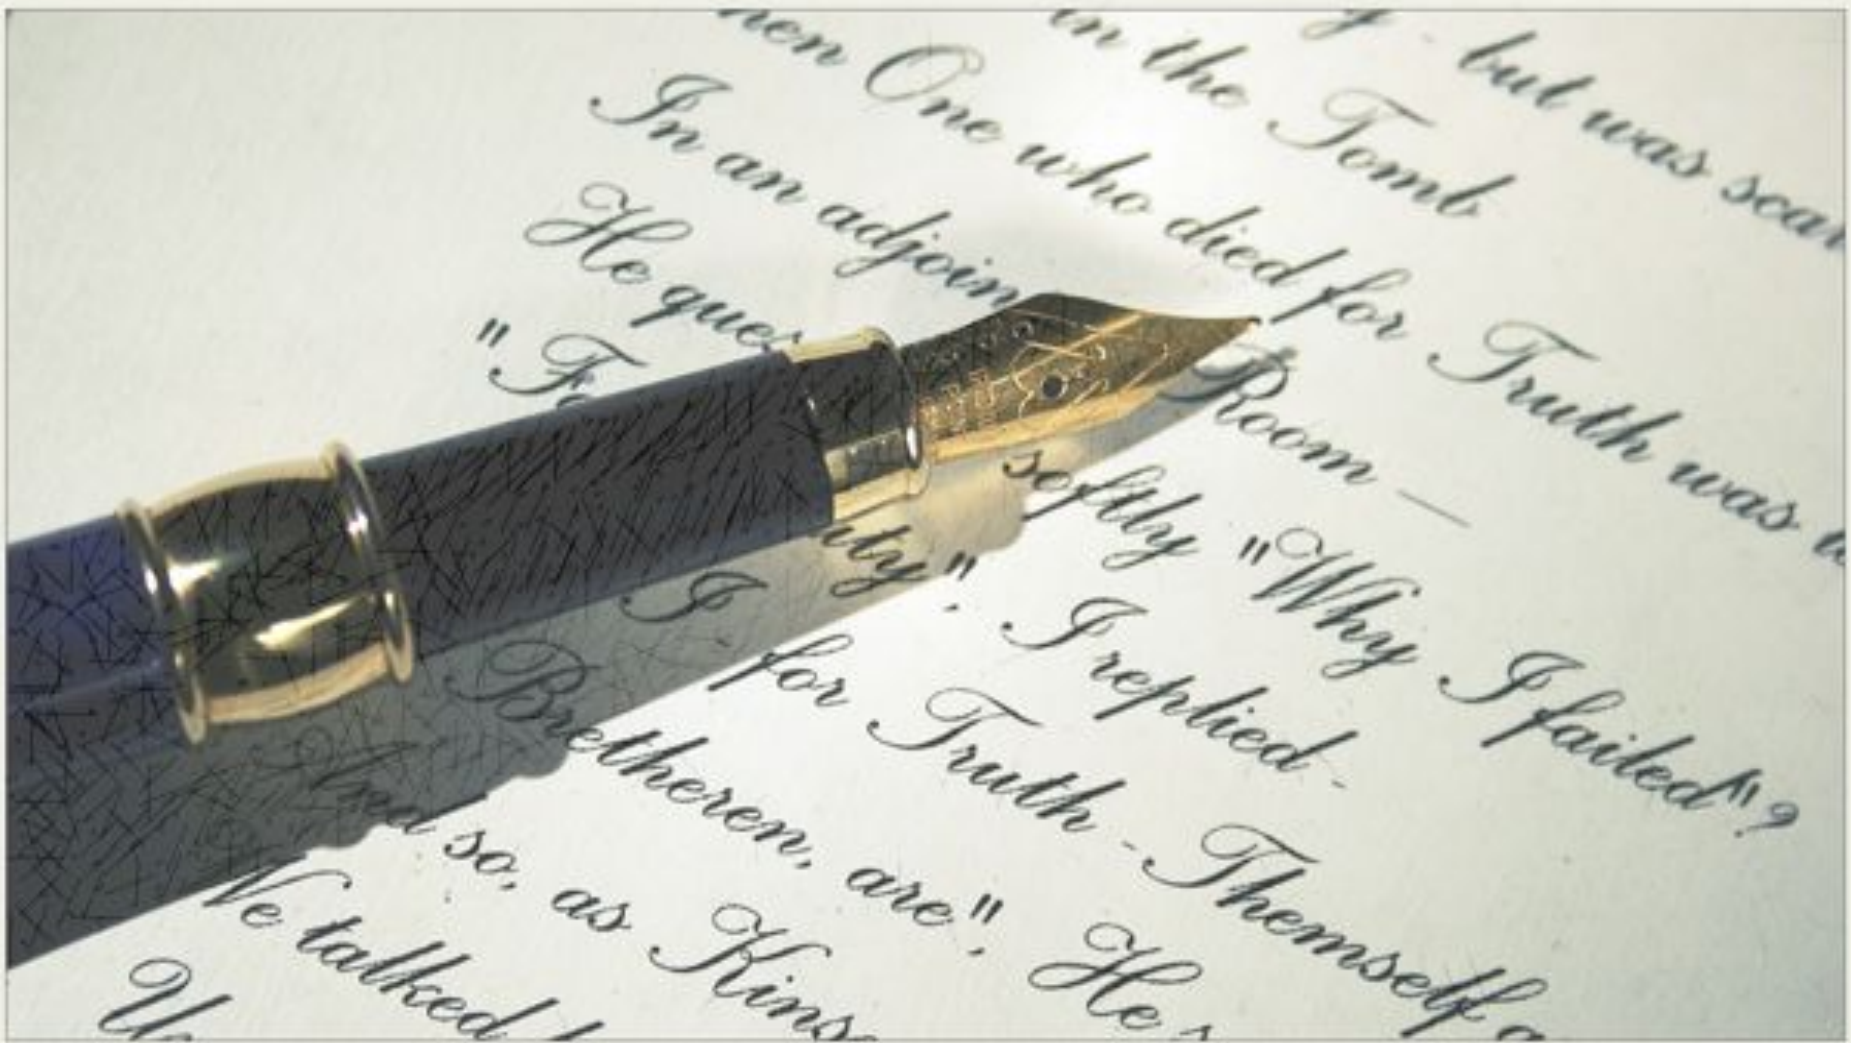 y - but was scar
in the Tomb
hen One who died for Truth was
In an adjoin Room —
He ques softly "Why I failed"?
"Fo uty", I replied-
I for Truth - Themself a
Bretheren, are", He s
And so, as Kins
We talked
U